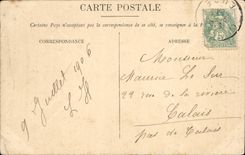 CARTE POSTALE
Certains Pays n'acceptent pas la correspondance de ce côté, se renseigner à la
CORRESPONDANCE
ADRESSE
9 Juillet 1906
Monsieur
Maurice Le Sur
22 rue de la rivière
Calais
pas de Calais